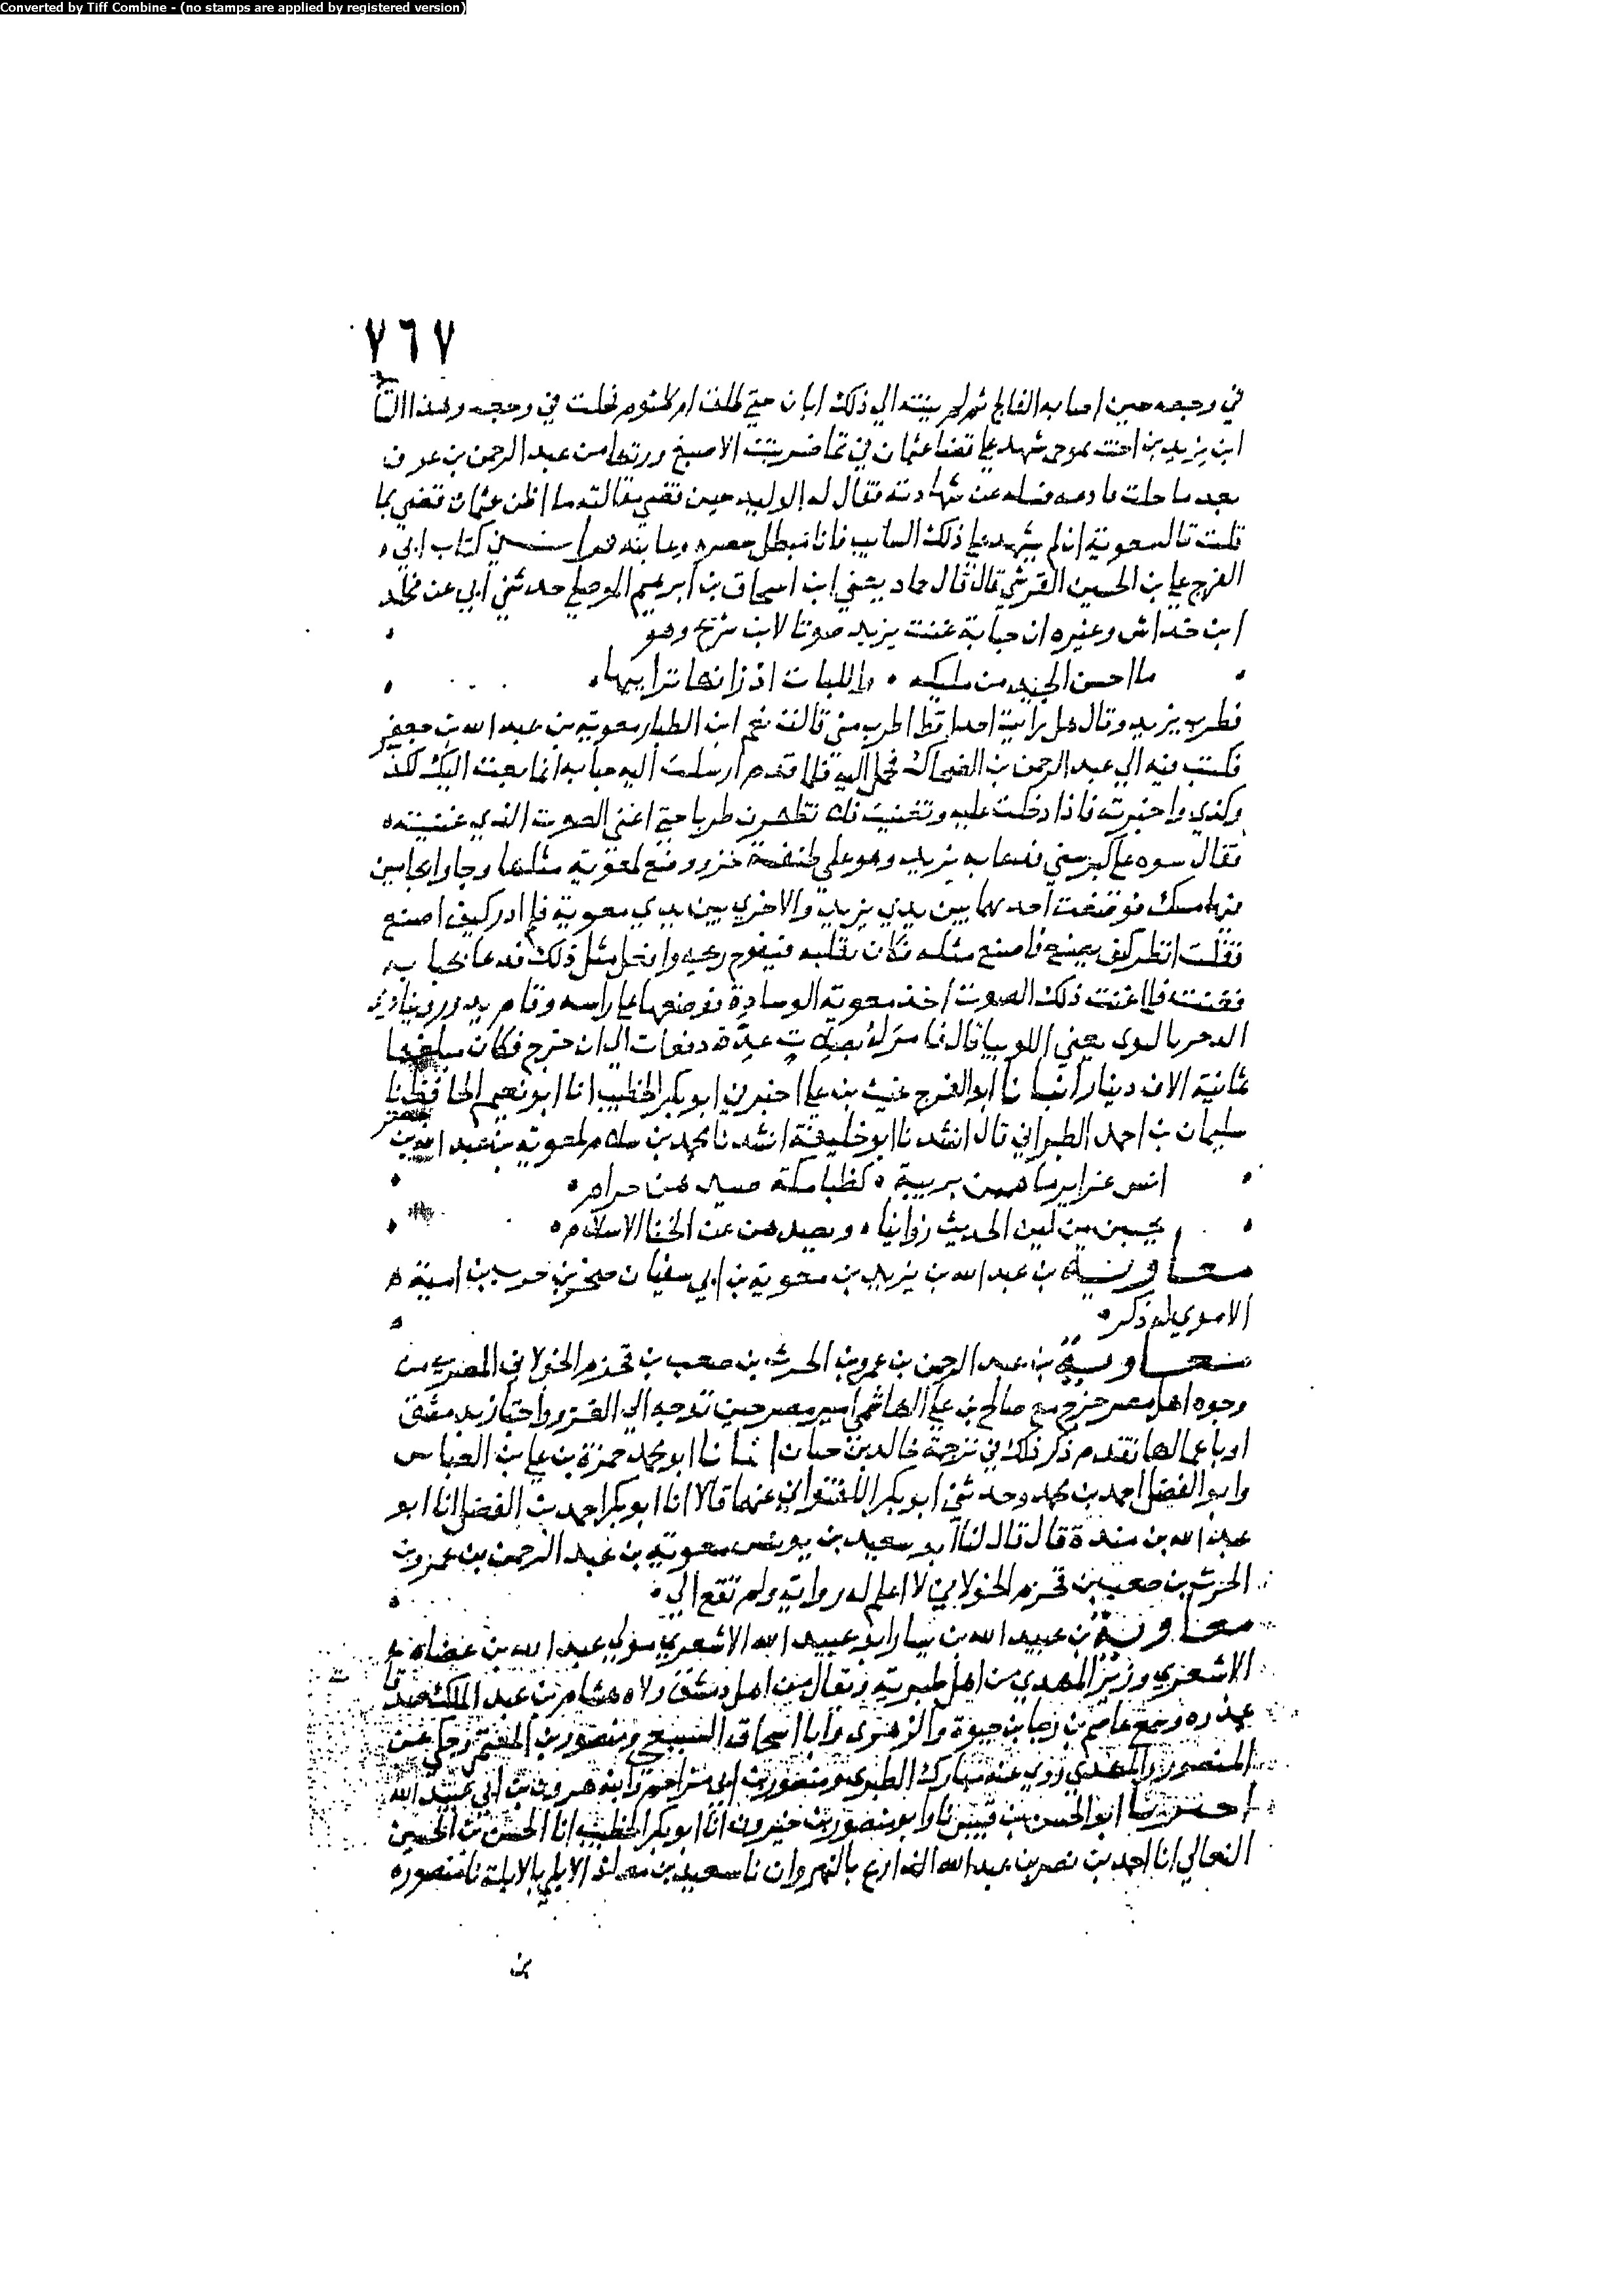 Converted by Tiff Combine - (no stamps are applied by registered version)
٧٦٧
في وجعه حين اصابه الفالج ثم لم ينته الي ذلك ابان حتي طلق ام كلثوم فحلت في وجعه وهذا السا
ابن يزيد بن اخت نمر شهد علي قضا عثمان في تماضر بنت الاصبغ ورثها من عبد الرحمن بن عوف
بعد ما حلت فادعه فسله عن شهادته فقال له الوليد حين قضي مقالته ما اظن عثمان قضي بما
قلت قال معوية ان لم يشهد علي ذلك السايب فانا مبطل كتاب ابي
الفرج علي بن الحسين القرشي قال قال حماد يعني ابن اسحاق بن ابرهيم الموصلي حدثني ابي عن مخلد
ابن خداش وغيره ان حبابة غنت يزيد صوتا لابن سريج وهو
ما احسن الجيد من مليكه واللبات اذ زانها ترايبها
فطرب يزيد وقال هل رايت احدا قط اطرب مني قالت نعم ابن الطيار معوية بن عبد الله بن جعفر
فكتب فيه الي عبد الرحمن بن الضحاك فحمل اليه فلما قدم ارسلت اليه حبابه انما بعث اليك لكذ
وكذي واخبرته فاذا دخلت عليه وتغنيت فلا تظهرن طربا حتي اغني الصوت الذي غنيته
فقال سوه علي كبر سني فدعا به يزيد وهو علي طنفسة خز ووضع لمعوية مثلها وجاوا بجامين
فيهما مسك فوضعت احدهما بين يدي يزيد والاخري بين يدي معوية فلم ادر كيف اصنع
فقلت انظر كيف يصنع فاصنع مثله فكان يقلبه فيفوح ريحه وافعل مثل ذلك فدعا بحبابه
فغنت فلما غنت ذلك الصوت اخذ معوية الوسادة فوضعها علي راسه وقام يدور وينادي
الدخر بالنوي يعني اللوبيا قال فامر له بصلات عدة دفعات الي ان خرج فكان مبلغها
ثمانية الاف دينار انبانا ابو الفرج غيث بن علي اخبرني ابو بكر الخطيب انا ابو نعيم الحافظ نا
سليمان بن احمد الطبراني قال انشدنا ابو خليفة انشدنا محمد بن سلام لمعوية بن عبد الله بن جعفر
انس غراير ما هممن بريبة كظبا مكة صيدهن حرام
يحسبن من لين الحديث زوانيا ويصدهن عن الخنا الاسلام
معاوية بن عبد الله بن يزيد بن معوية بن ابي سفيان صخر بن حرب بن امية
الاموي له ذكر
معاوية بن عبد الرحمن بن عمرو بن الحرث بن صعب بن قحزم الخولاني المصري من
وجوه اهل مصر خرج مع صالح بن علي الهاشمي امير مصر حين توجه الي الغزو واجتاز بدمشق
او باعمالها تقدم ذكر ذلك في ترجمة خالد بن حيان انبانا ابو محمد حمزة بن علي بن العباس
وابو الفضل احمد بن محمد وحدثني ابو بكر اللفتواني عنهما قالا انا ابو بكر احمد بن الفضل انا ابو
عبد الله بن مندة قال قال لنا ابو سعيد بن يونس معوية بن عبد الرحمن بن عمرو بن
الحرث بن صعب بن قحزم الخولاني لا اعلم له رواية ولم تقع الي
معاوية بن عبيد الله بن يسار ابو عبيد الله الاشعري مولي عبد الله بن عضاه
الاشعري وزير المهدي من اهل طبرية ويقال من اهل دمشق ولاه هشام بن عبد الملك صدقا
عذره وسمع عاصم بن رجا بن حيوة والزهري وابا اسحاق السبيعي ومنصور بن المعتمر وحكي عن
المنصور والمهدي روي عنه مبارك الطبري ومنصور بن ابي مزاحم وابنه هرون بن ابي عبيد الله
اخبرنا ابو الحسن بن قبيس نا وابو منصور بن خيرون انا ابو بكر الخطيب انا الحسن بن الحسين
النعالي انا احمد بن نصر بن عبد الله الذارع بالنهروان نا سعيد بن معاذ الابلي بالابلة نا منصور
بن